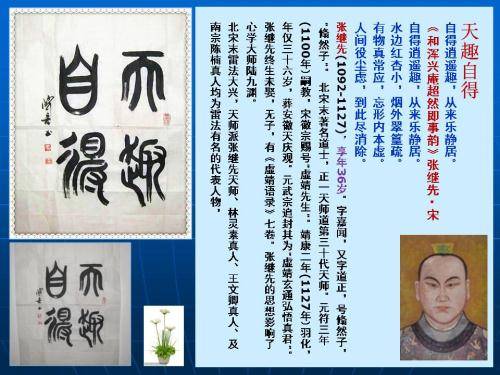 天趣
自得
天趣
自得
天趣自得
自得逍遥趣，从来乐静居。
《和浑兴庵超然即事韵》张继先·宋
自得逍遥趣，从来乐静居。
水边红杏小，烟外翠篁疏。
有物真常应，忘形内本虚。
人间役尘虑，到此尽消除。
张继先(1092-1127)，享年36岁。字嘉闻，又字道正，号翛然子，
“翛然子”。北宋末著名道士，正一天师道第三十代天师。元符三年
(1100年)嗣教，宋徽宗赐号“虚靖先生”。靖康二年(1127年)羽化，
年仅三十六岁，葬安徽天庆观。元武宗追封其为“虚靖玄通弘悟真君”。
张继先终生未娶，无子，有《虚靖语录》七卷。张继先的思想影响了
心学大师陆九渊。
北宋末雷法大兴，天师派张继先天师、林灵素真人、王文卿真人、及
南宗陈楠真人均为雷法有名的代表人物，